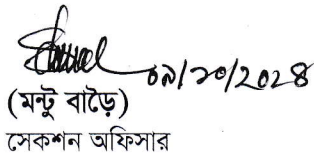 ০৯/১০/২০২৪
(মন্টু বাড়ৈ)
সেকশন অফিসার